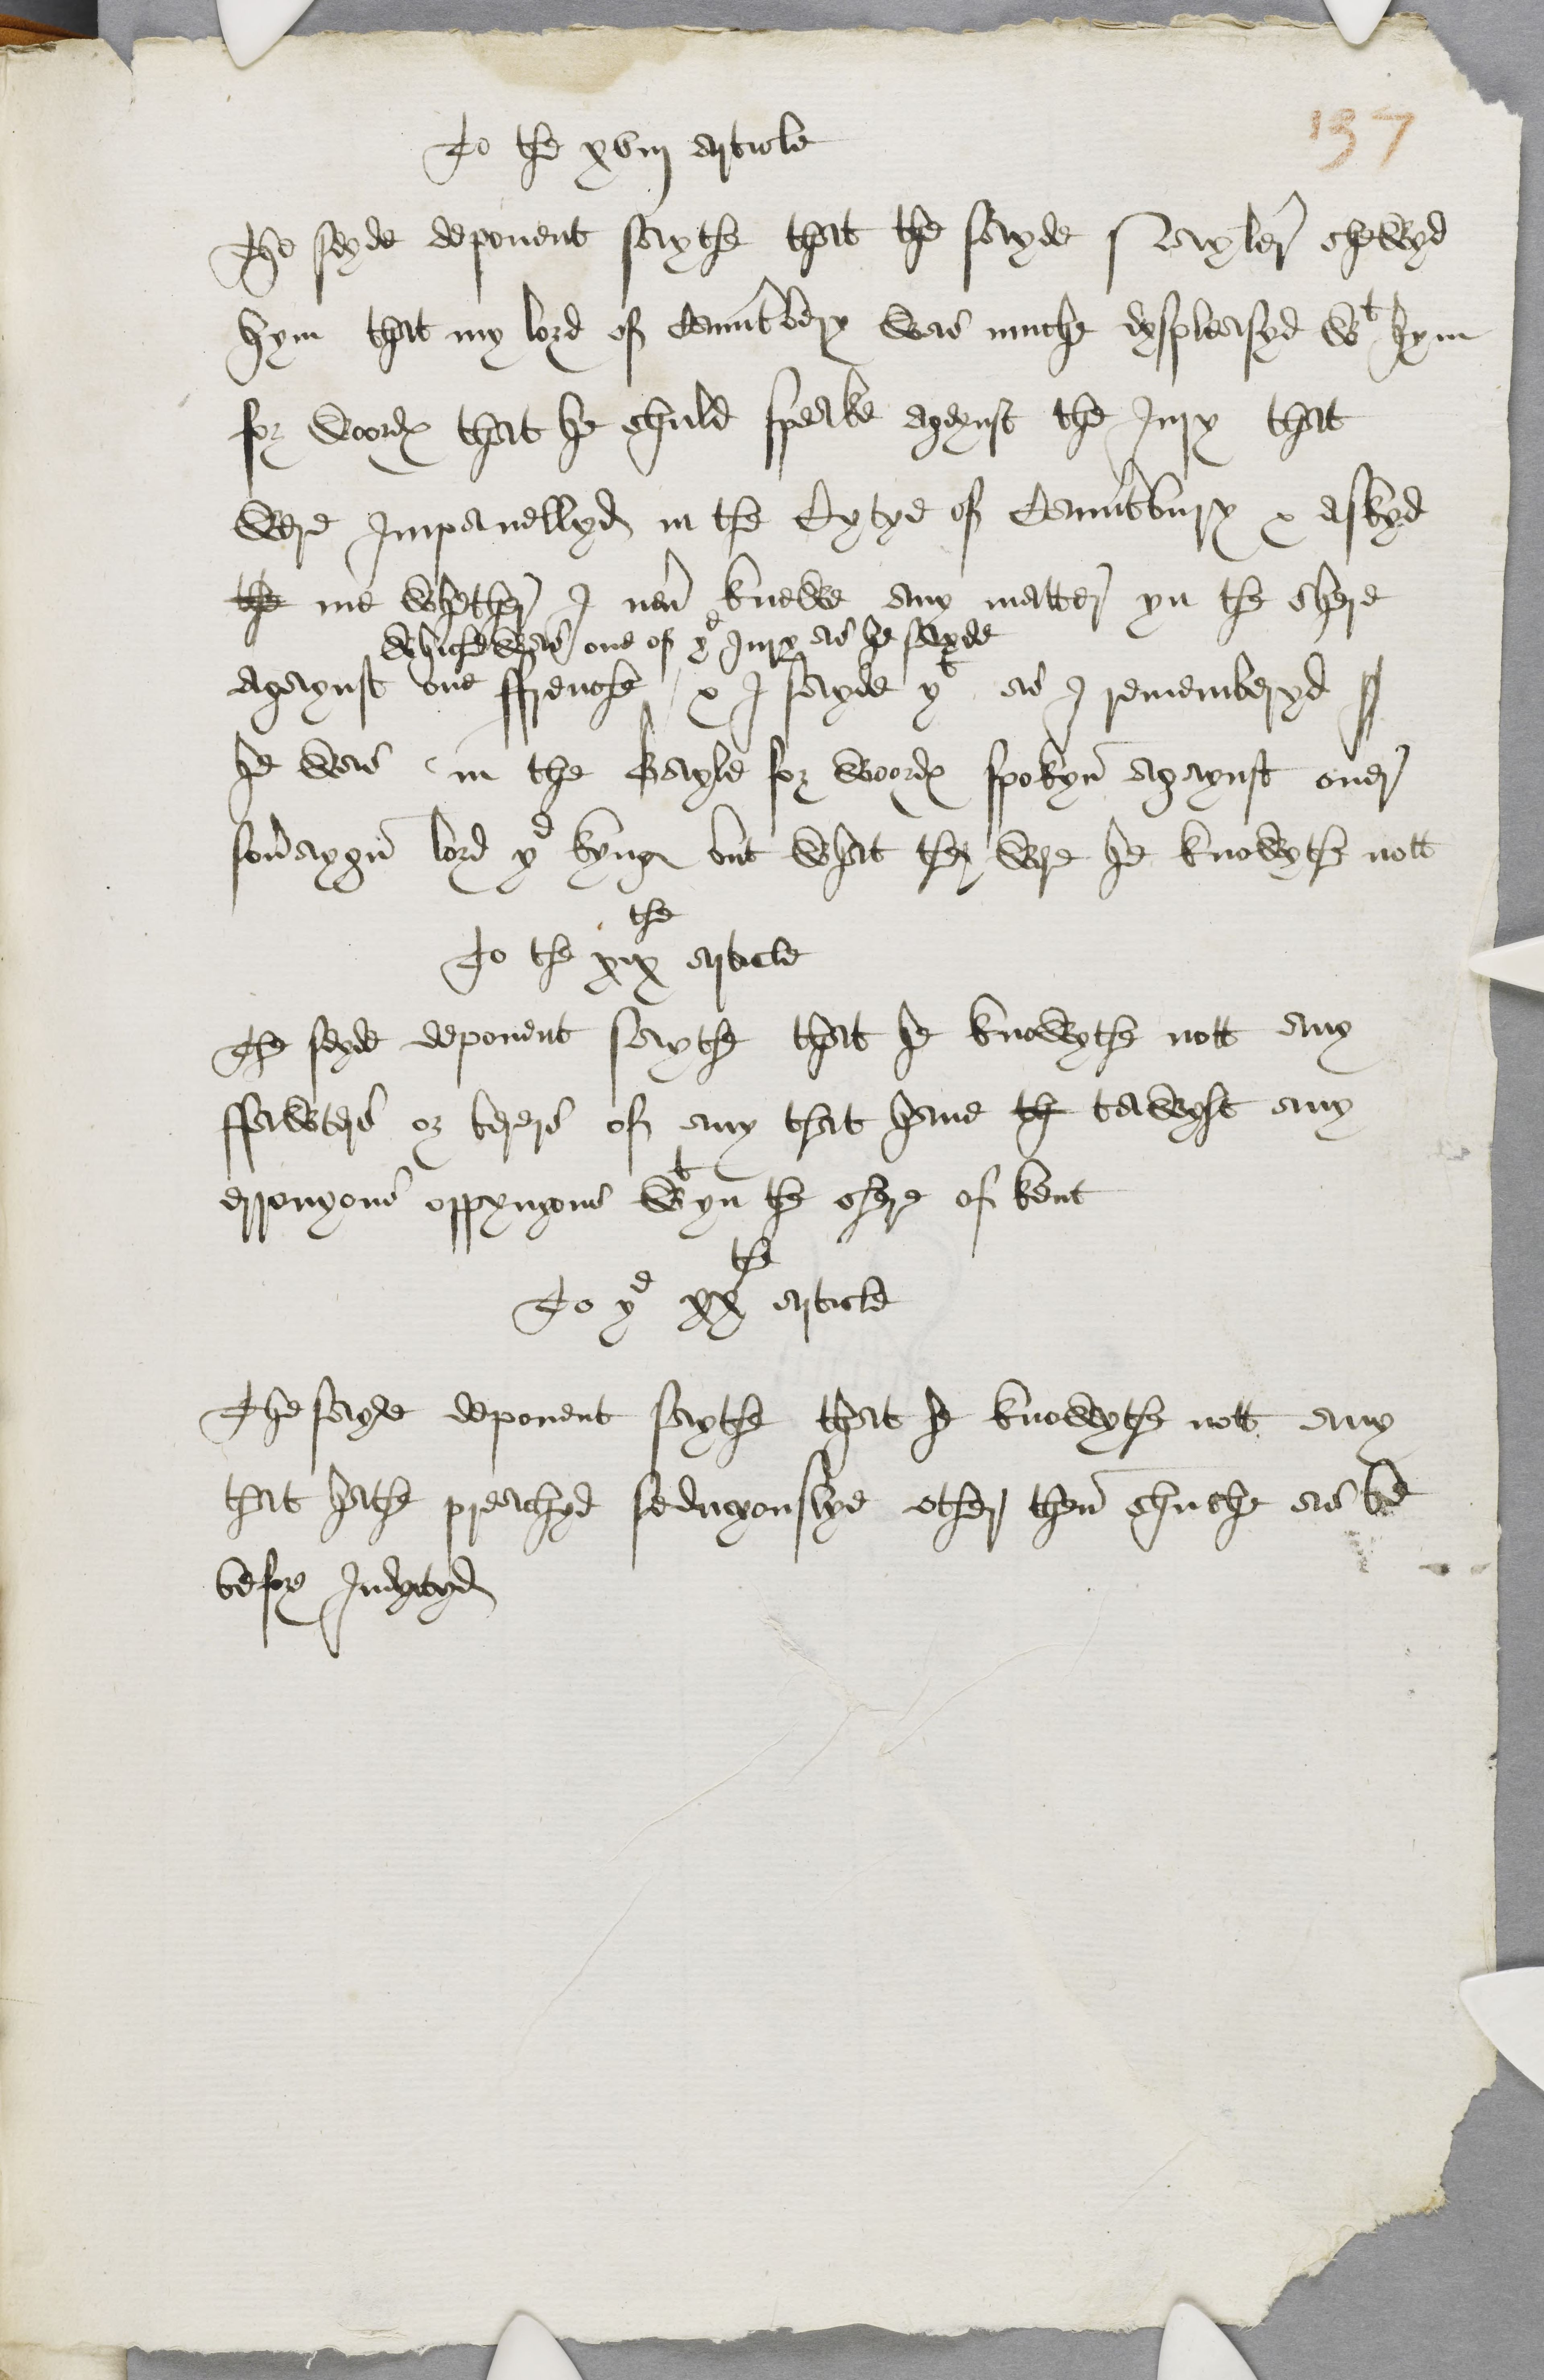 137
To the xviij article
The seyde deponent saythe that the sayde Nayler chewyd
hym that my lord of Caunt'bery was muche dyspleasyd wt hym
for woordes that he shuld speake ageynst the Jury that
were Impanellyd in the Cytye of Caunt'bury & askyd
the me whether I neu' knewe any matter yn the shere
whiche was one of ye Jury as he sayde
agaynst one ffrenche / & I sayde yt as I rememberyd
he was in the Bayle for woordes spokyn agaynst ouer
sou'aygn lord ye kyng but what they were he knowythe nott
To the xix the article
The seyde deponent saythe that he knowythe nott any
ffawters or berers of any that haue th tawght any
erronyous oppynyons wtyn the shere of kent
To ye xx the article
The sayde deponent saythe that he knowythe nott any
that hathe preachyd sedicyouslye other then suche as be
before Indyctyd